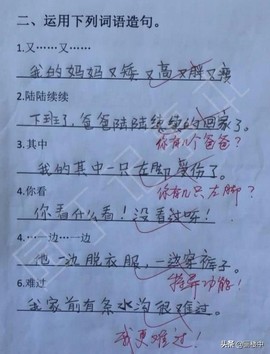 二、运用下列词语造句。
1.又……又……
我的妈妈又矮又高又胖又瘦
2.陆陆续续
下班了，爸爸陆陆续续的回家了。
你有几个爸爸？
3.其中
我的其中一只左脚受伤了。
你有几只左脚？
4.你看
你看什么看！没看过呀！
4.…一边…一边
他一边脱衣服，一边穿裤子。
特异功能！
6.难过
我家前有条水沟很难过。
我更难过！
头条@当楼中